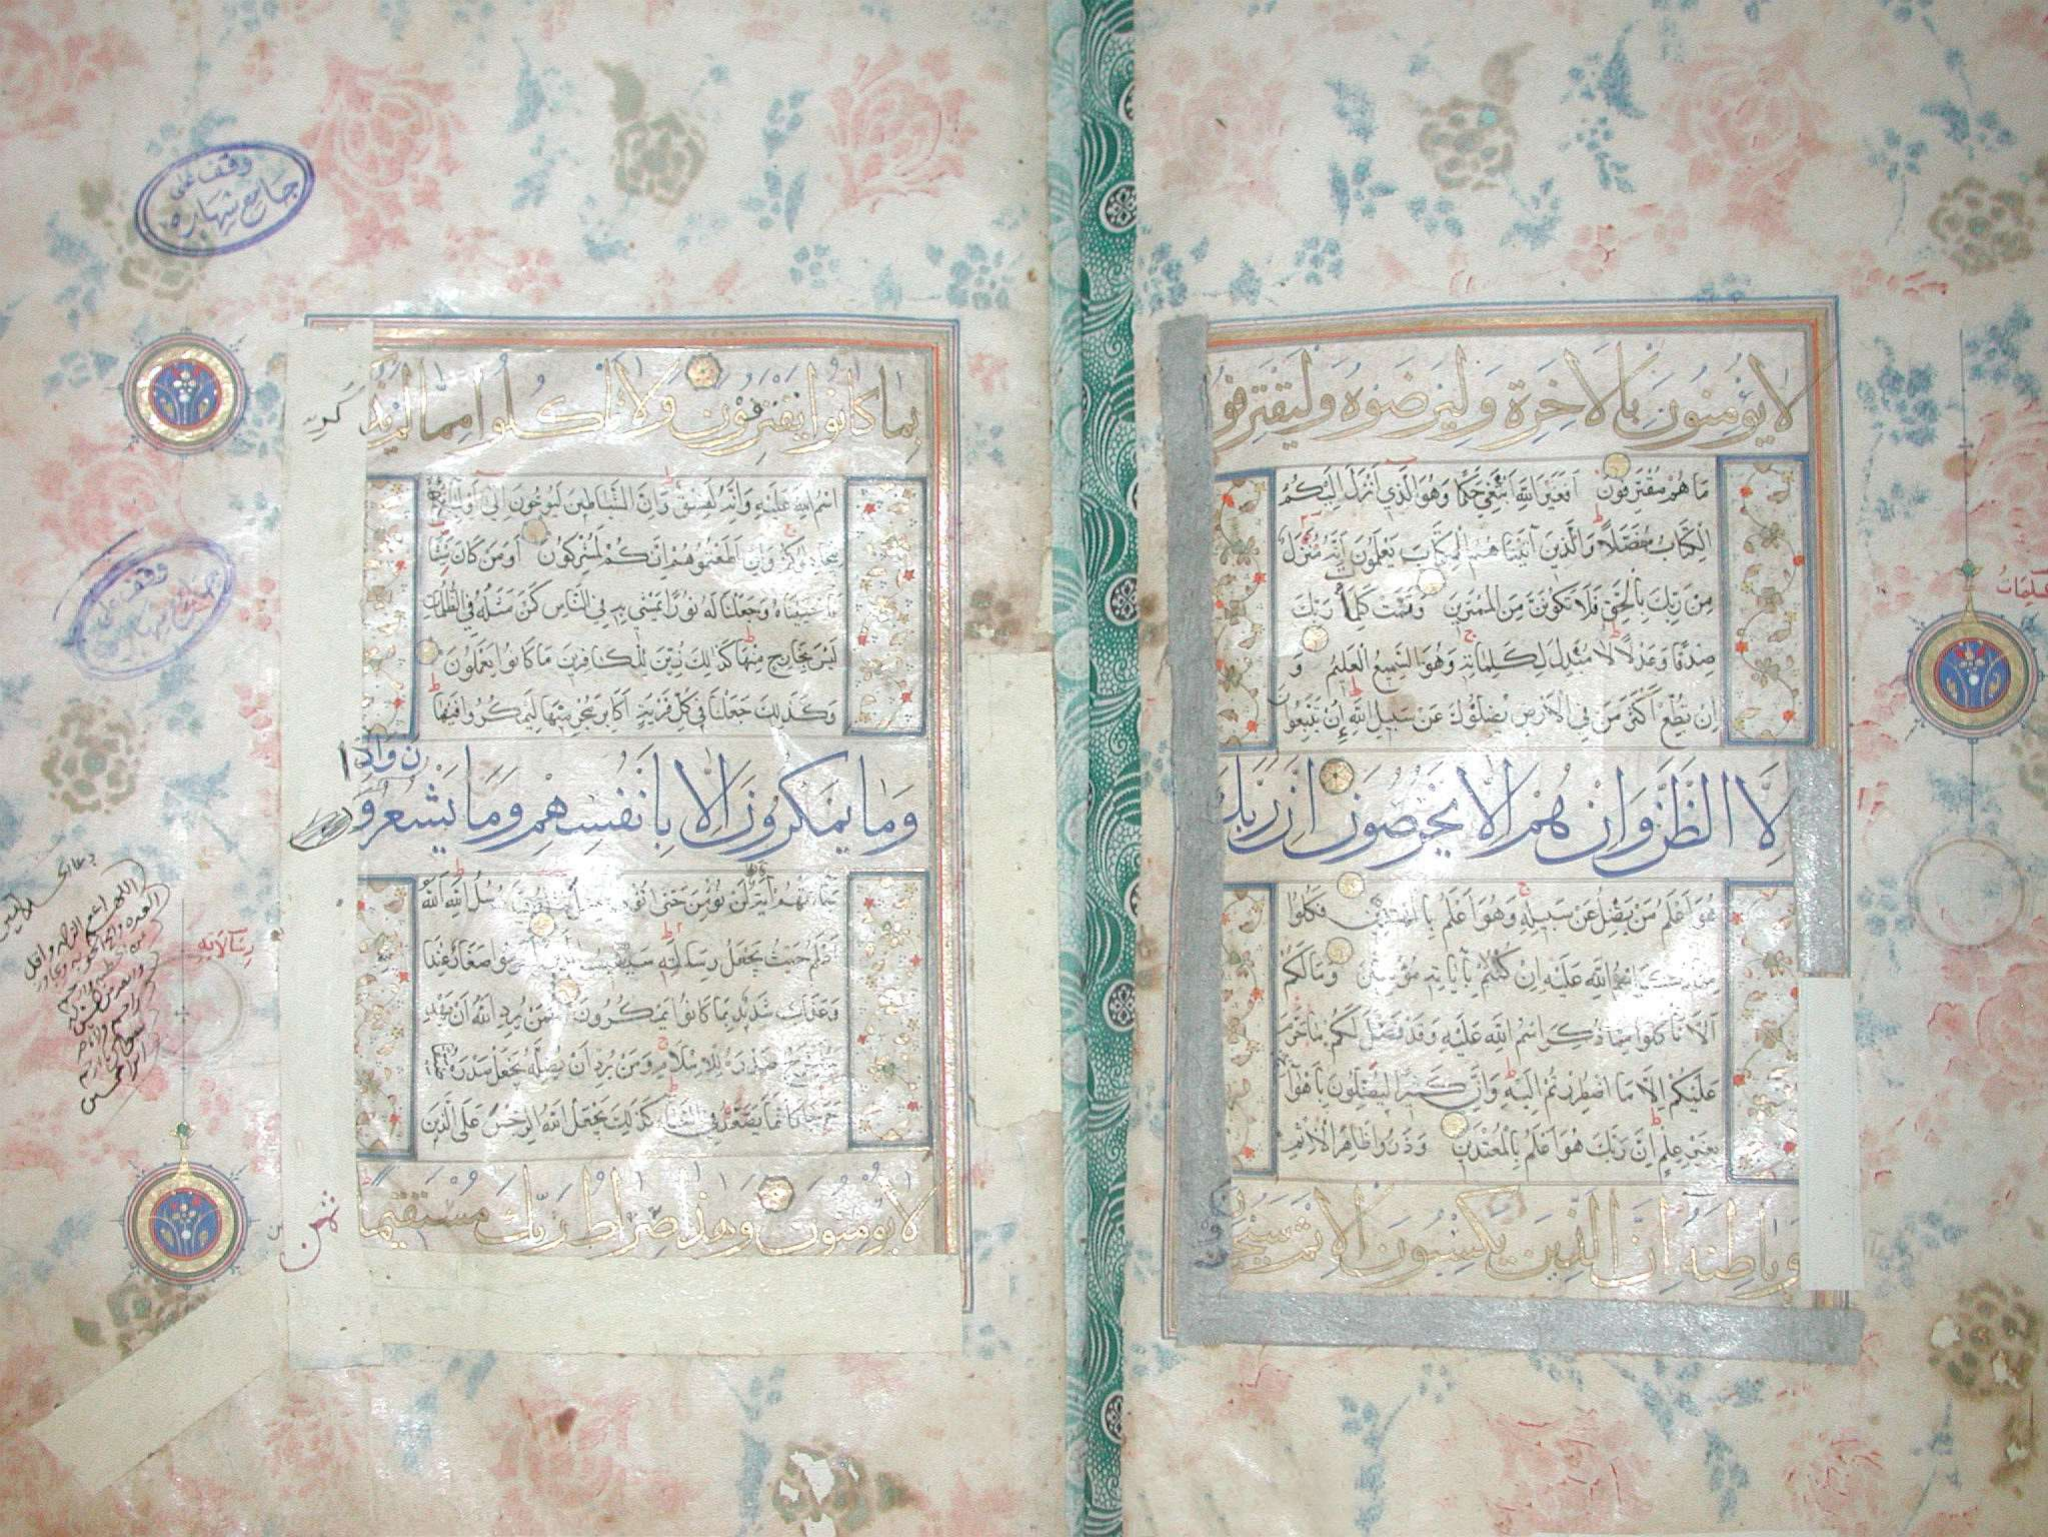 لا يؤمنون بالاخرة وليرضوه وليقترفو
ما هم مقترفون افغير الله ابتغي حكما وهو الذي انزل اليكم
الكتاب مفصلا والذين آتيناهم الكتاب يعلمون انه منزل
من ربك بالحق فلا تكونن من الممترين وتمت كلمة ربك
صدقا وعدلا لا مبدل لكلماته وهو السميع العليم و
ان تطع اكثر من في الارض يضلوك عن سبيل الله إن يتبعون
الا الظن وان هم الا يخرصون ان ربك
هو اعلم من يضل عن سبيله وهو اعلم بالمهتدين فكلوا
اسم الله عليه ان كنتم بآياته مؤمنين ومالكم
ألا تاكلوا مما ذكر اسم الله عليه وقد فصل لكم ما حرم
عليكم الا ما اضطررتم اليه وان كثيرا ليضلون باهوآ
بغير علم ان ربك هو اعلم بالمعتدين وذروا ظاهر الاثم
وباطنه ان الذين يكسبون الاثم سيج
كلمات
وقف على
جامع شهاره
بما كانوا يقترفون ولا تاكلوا مما لم يذكر
اسم الله عليه وانه لفسق وان الشياطين ليوحون الى اوليائهم
ليجادلوكم وان اطعتموهم انكم لمشركون اومن كان ميتا
فاحييناه وجعلنا له نورا يمشي به في الناس كمن مثله في الظلمات
ليس بخارج منها كذلك زين للكافرين ما كانوا يعملون
وكذلك جعلنا في كل قرية اكابر مجرميها ليمكروا فيها
وما يمكرون الا بانفسهم وما يشعرون واذا
جاءتهم آية لن نؤمن حتى رسل الله الله
اعلم حيث يجعل رسالته صغار عند
وعذاب شديد بما كانوا يمكرون فمن يرد الله ان يهديه
يشرح صدره للاسلام ومن يرد ان يضله يجعل صدره
حرجا كانما يصعد في السماء كذلك يجعل الله الرجس على الذين
لا يؤمنون وهذا صراط ربك مستقيما
وقف على
رسالاته
ثمن